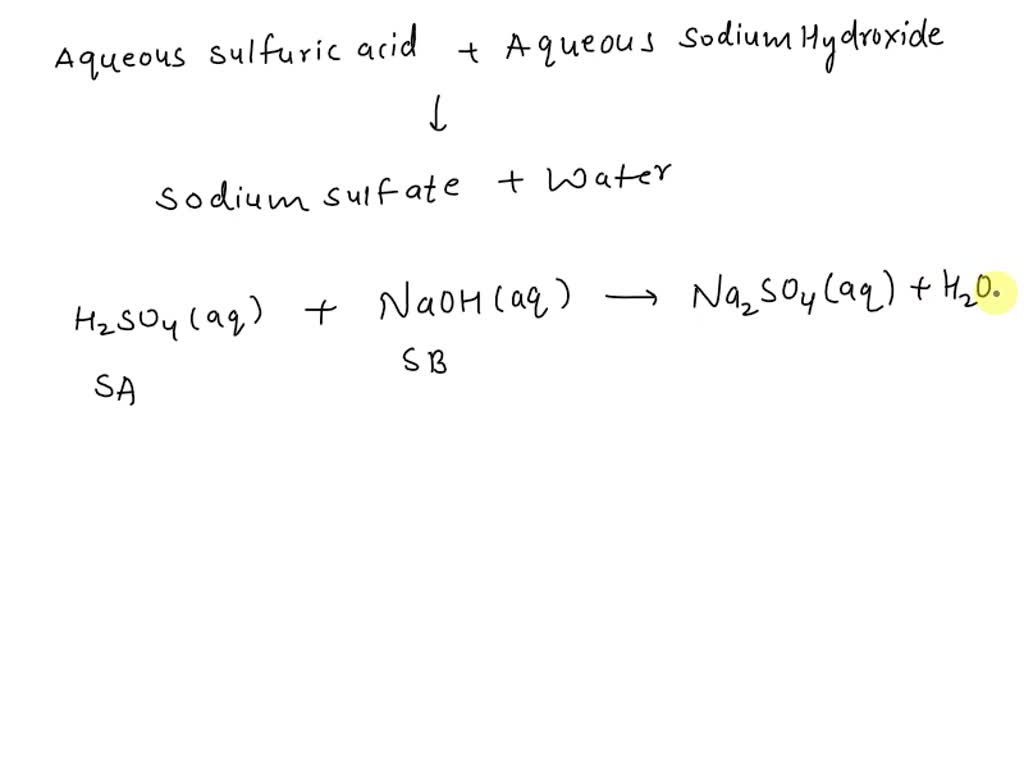 Aqueous sulfuric acid + Aqueous Sodium Hydroxide
↓
Sodium sulfate + Water
H₂SO₄(aq) + NaOH(aq) → Na₂SO₄(aq) + H₂O.
SA SB